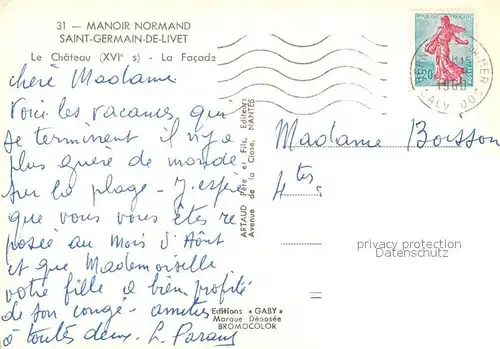 31 — MANOIR NORMAND
SAINT-GERMAIN-DE-LIVET
Le Château (XVIe s) - La Façade
chère Madame
Voici les vacances qui
se terminent il n'y a
plus guère de monde
sur la plage - J'espère
que vous vous êtes re
posée au Mois d'Août
et que Mademoiselle
votre fille a bien profité
de son congé - amitiés
à toutes deux.
ARTAUD Père et Fils, Editeurs
Avenue de la Close, NANTES
REPUBLIQUE FRANÇAISE
0,20
1960
CALVADOS
Madame Boisson
4 tes
privacy protection
Datenschutz
Editions « GABY »
Marque Déposée
BROMOCOLOR